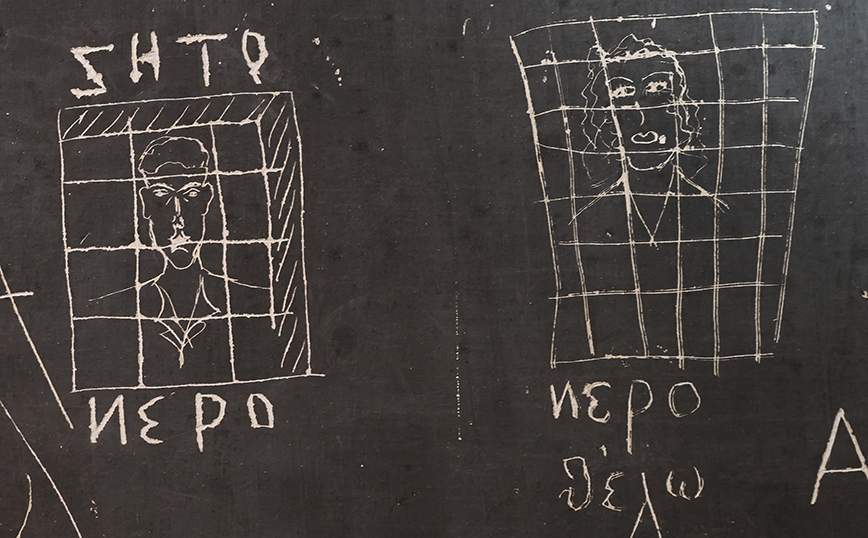 ΖΗΤΩ
ΝΕΡΟ
ΝΕΡΟ
θέλω
Α